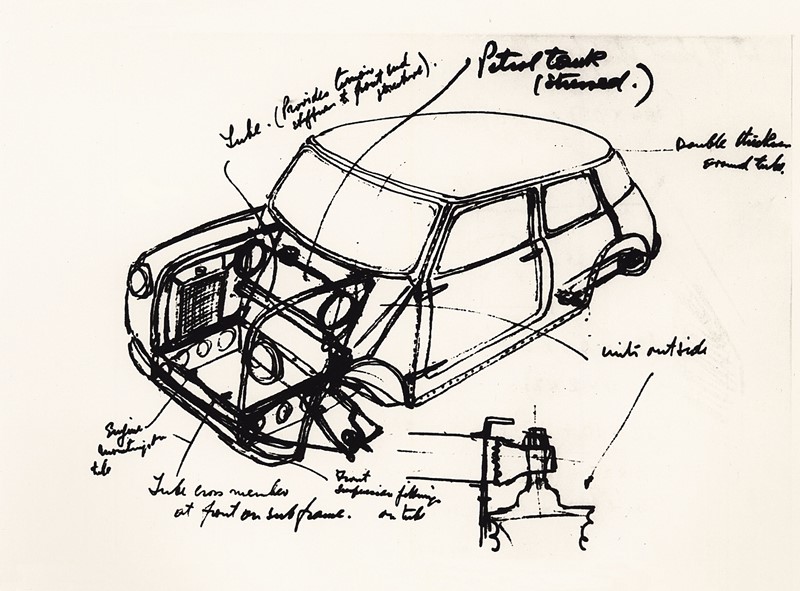 Petrol tank
(stressed.)
Tube. (Provides torsion
stiffness to front end
structure).
Double thickness
around tube.
units outside
Engine
mounting on
tube
Tube cross member
at front on subframe.
Front
suspension fittings
on tube